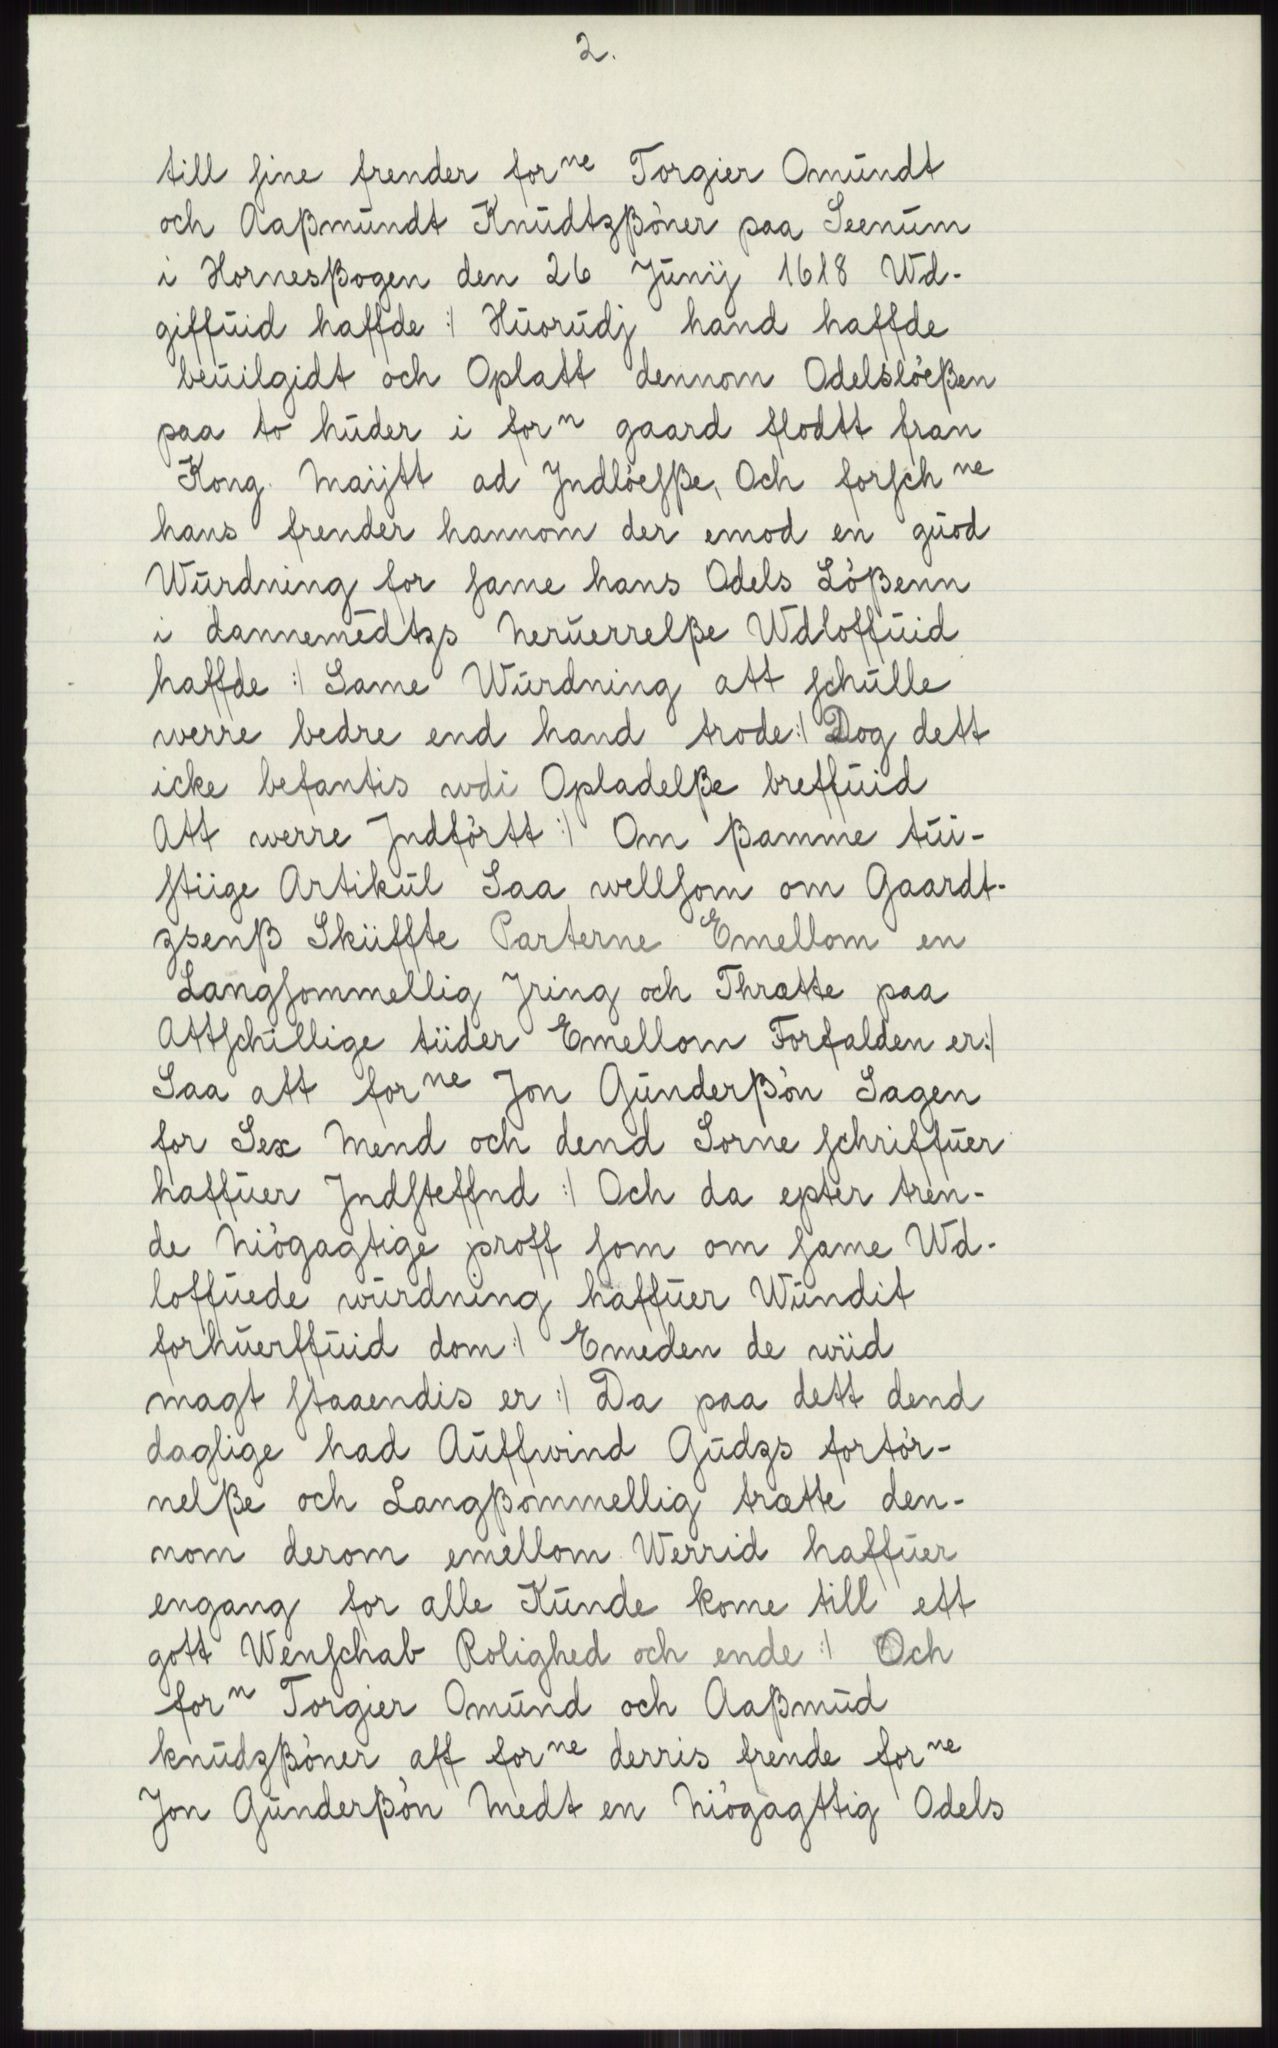 2.
till sine frender forne Torgier Omundt
och Aaßmundt Knudtzßöner paa Seenum
i Hornesßogen den 26 Junij 1618 Wd-
giffuid haffde :/ Huorudj hand haffde
beuilgidt och Oplatt dennom Odelslöeßen
paa to huder i forn gaard flodtt fran
Kong. Maijtt ad Jndlöesße, Och forschne
hans frender hannom der emod en guod
Wurdning for same hans Odels Lößenn
i dannemedtzs Neruerrelße Wdloffuid
haffde :/ Same Wurdning att schulle
werre bedre end hand trode :/ Dog dett
icke befantis wdi Opladelße breffuid
Att werre Jndförtt :/ Om ßamme tui-
stiige Artikul Saa wellsom om Gaardt-
zsenß Skiiffte Parterne Emellom en
Langsommellig Jring och Thrætte paa
Attschillige tiider Emellom Forfalden er :/
Saa att forne Jon Gunderßön Sagen
for Sex Mend och dend Sorne schriffuer
haffuer Jndsteffnd :/ Och da epter tren-
de Niögagtige proff som om same Wd-
loffuede wurdning haffuer Wundit
forhuerffuid dom :/ Emeden de wiid
magt staaendis er :/ Da paa dett dend
daglige had Auffwind Gudzs fortör-
nelße och Langßommellig trætte den-
nom derom emellom Werrid haffuer
engang for alle Kunde kome till ett
gott Wenschab Rolighed och ende :/ Och
forn Torgier Omund och Aaßmud
knudzßöner aff forne derris frende forne
Jon Gunderßön Medt en Niögagttig Odels